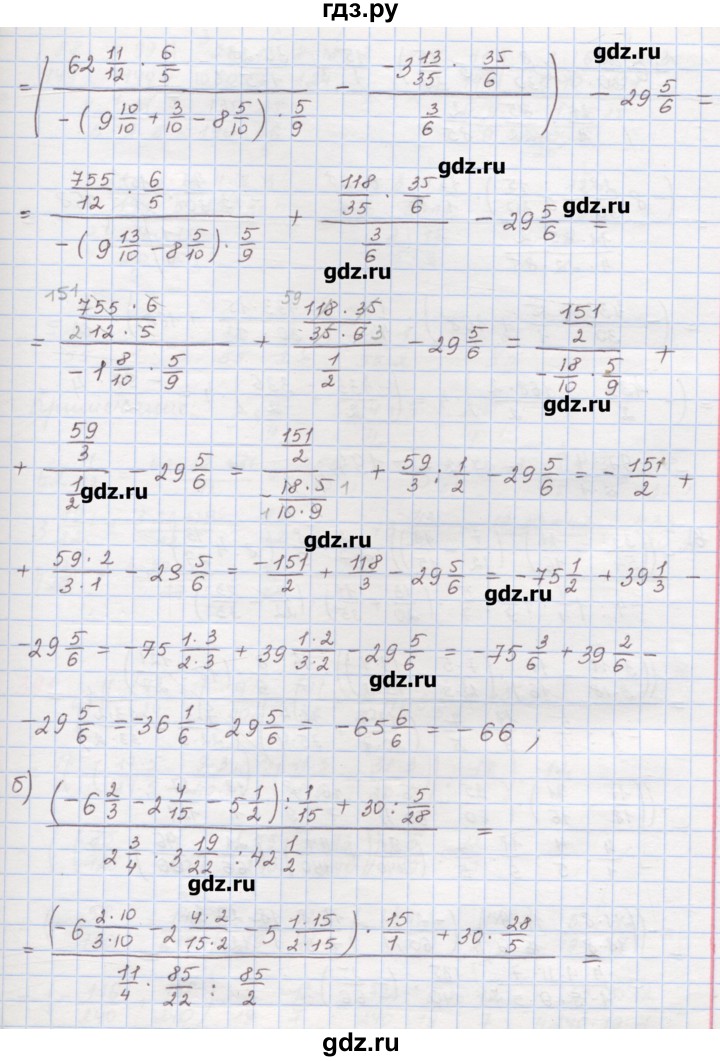 гдз.ру
= ( (62 11/12 · 6/5) / (-(9 10/10 + 3/10 - 8 5/10) · 5/9) - (-3 13/35 · 35/6) / (3/6) ) - 29 5/6 =
gdz.ru
gdz.ru
= (755/12 · 6/5) / (-(9 13/10 - 8 5/10) · 5/9) + (118/35 · 35/6) / (3/6) - 29 5/6 =
gdz.ru
gdz.ru
151 59
= ((755 · 6)/(2 12 · 5)) / (-1 8/10 · 5/9) + ((118 · 35)/(35 · 6 3)) / (1/2) - 29 5/6 = (151/2) / (-18/10 · 5/9) +
gdz.ru
+ (59/3) / (1/2) - 29 5/6 = (151/2) / (-(18 · 5 1)/(1 10 · 9)) + 59/3 : 1/2 - 29 5/6 = - 151/2 +
gdz.ru
gdz.ru
+ (59 · 2)/(3 · 1) - 29 5/6 = -151/2 + 118/3 - 29 5/6 = -75 1/2 + 39 1/3 -
gdz.ru
-29 5/6 = -75 (1 · 3)/(2 · 3) + 39 (1 · 2)/(3 · 2) - 29 5/6 = -75 3/6 + 39 2/6 -
gdz.ru
-29 5/6 = -36 1/6 - 29 5/6 = -65 6/6 = -66 ;
б) ((-6 2/3 - 2 4/15 - 5 1/2) : 1/15 + 30 : 5/28) / (2 3/4 · 3 19/22 : 42 1/2) =
gdz.ru
= ((-6 (2·10)/(3·10) - 2 (4·2)/(15·2) - 5 (1·15)/(2·15)) · 15/1 + 30 · 28/5) / (11/4 · 85/22 : 85/2) =
gdz.ru